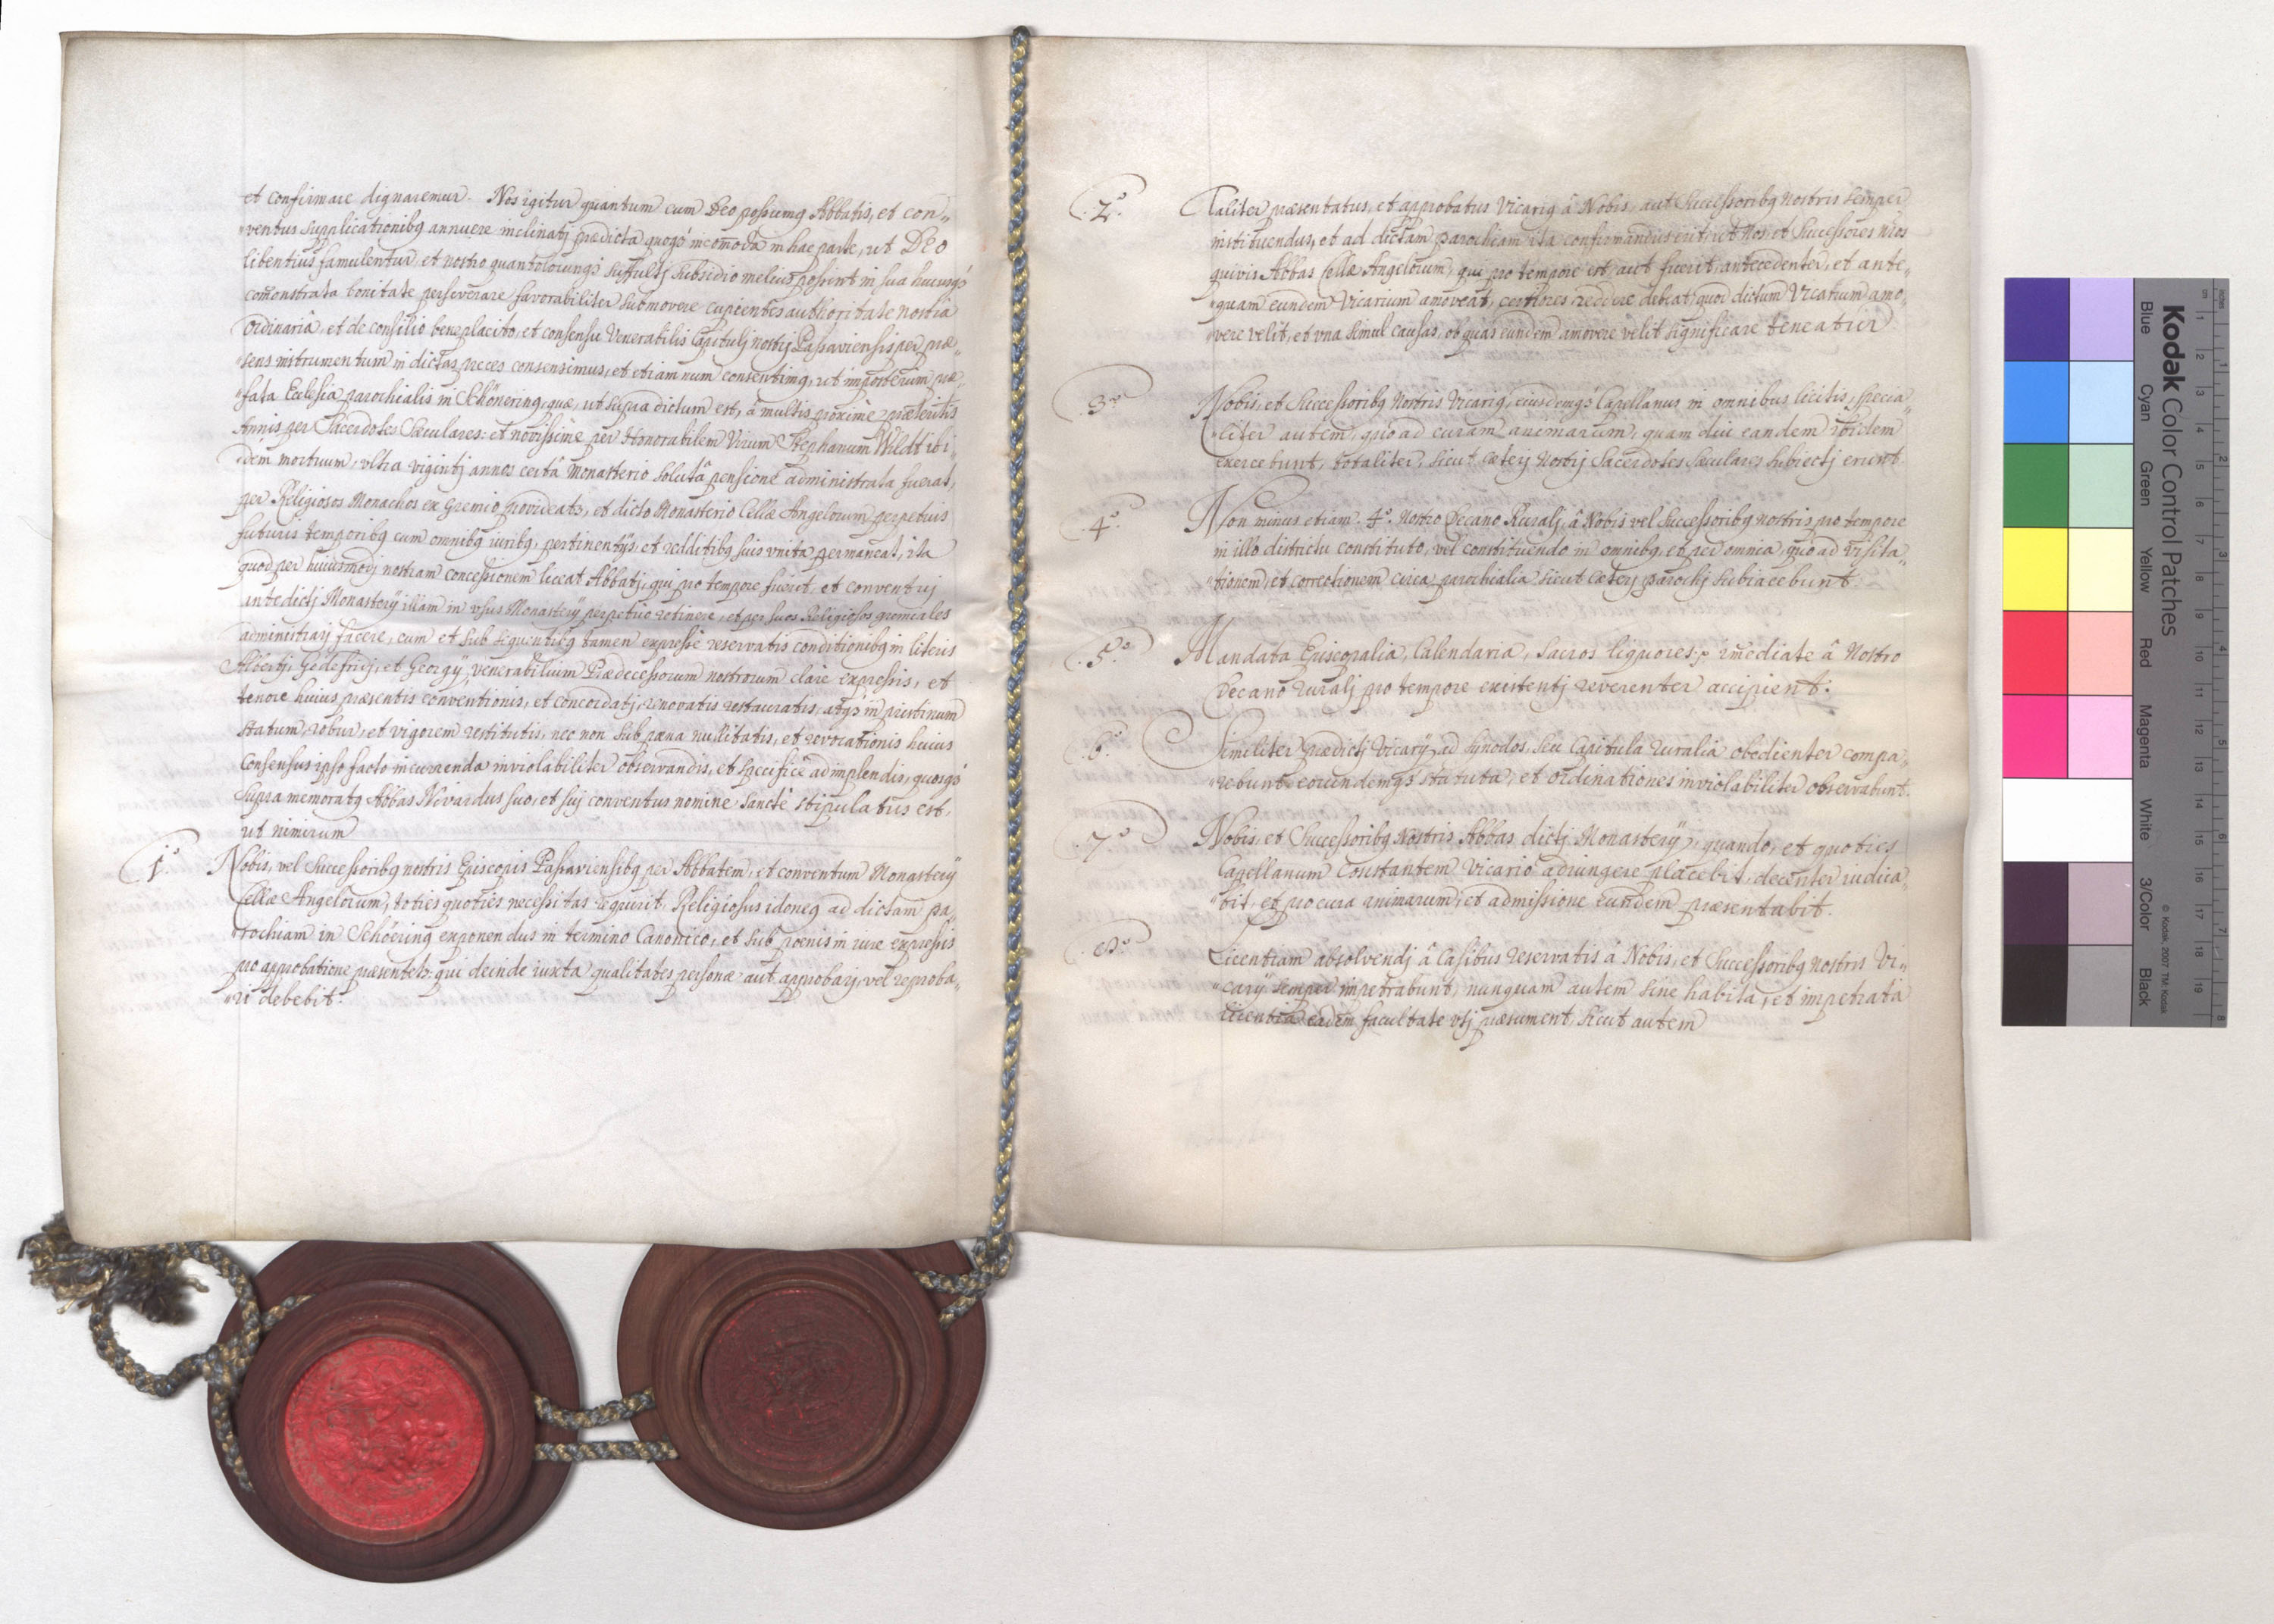 et confirmare dignaremur. Nos igitur quantum cum Deo possumq Abbatis, et con„
„ventus supplicationibq annuere inclinatj prædicta quoqȝ incom̄oda in hac parte, ut Deo
libentius famulentur, et nostro quantolocunqȝ suffultj subsidio melius possint in sua hucusqȝ
com̄onstrata bonitate perseverare favorabiliter submovere cupientes authoritate nostra
Ordinariâ, et de consilio beneplacito, et consensu Venerabilis Capitulj nostrj Passaviensis per præ„
„sens instrumentum in dictas preces consensimus, et etiam num consentimq, ut imposterum præ„
„fata Ecclesia parochialis in Schönering, quæ, ut supra dictum est, â multis proximè præteritis
Annis per Sacerdotes Sæculares: et novissimè per Honorabilem Virum Stephanum Wildt ibi„
„dem mortuum, vltra vigintj annos certâ Monasterio solutâ pensione administrata fuerat,
per Religiosos Monachos ex Gremio provideatȝ, et dicto Monasterio Cellæ Angelorum perpetuis
futuris temporibq cum omnibq iuribq, pertinentijs, et redditibq suis vnita permaneat, ita
quod per huiusmodj nostram concessionem liceat Abbatj, qui pro tempore fuerit, et conventuj
antedictj Monasterÿ illam in vsus Monasterÿ perpetuò retinere, et per suos Religiosos gremiales
administrarj facere, cum et sub sequentibq tamen expressè reservatis conditionibq in literis
Albertj, Gedefridj, et Georgÿ, venerabilium Prædecessorum nostrorum clarè expressis, et
tenore huius præsentis conventionis, et concordatj, renovatis restauratis, atqȝ in pristinum
statum, robur, et vigorem restitutis, nec non sub pæna nullitatis, et revocationis huius
Consensus ipso facto incurrenda inviolabiliter observandis, et specificè adimplendis, quosqȝ
supra memoratq Abbas Nivardus suo, et suj conventus nomine sanctè stipulatus est,
ut nimirum
1º. Nobis, vel Successoribq nostris Episcopis Passaviensibq per Abbatem, et conventum Monasterÿ
Cellæ Angelorum, toties quoties necessitas requirit, Religiosus idoneq ad dictam pa„
„rochiam in Schönering exponendus in termino Canonico, et sub poenis in iure expressis
pro approbatione præsentetȝ. qui deinde iuxta qualitates personæ aut approbarj, vel reproba„
„ri debebit.
.2º. Taliter præsentatus, et approbatus Vicariq â Nobis, aut Successoribq nostris semper
instituendus, et ad dictam parochiam ita confirmandus erit, ut Nos, et Successores nr̄os
quivis Abbas Cellæ Angelorum, qui pro tempore est, aut fuerit, antecedenter, et ante„
„quam eundem Vicarium amoveat, certiores reddere debeat, quod dictum Vicarium amo„
„vere velit, et vna simul causas, ob quas eundem amovere velit significare teneatur
.3º. Nobis, et Successoribq Nostris Vicariq, eiusdemqȝ Capellanus in omnibus licitis, specia„
„liter autem, quo ad curam animarum, quam diu eandem ibidem
exercebunt, totaliter, sicut cæterj Nostrj Sacerdotes Sæculares subiectj erunt.
.4º. Non minus etiam. 4º. Nostro Decano Ruralj, â Nobis vel Successoribq nostris pro tempore
in illo districtu constituto, vel constituendo in omnibq, et per omnia, quo ad visita„
„tionem, et correctionem circa parochialia sicut cæterj parochj subiacebunt.
.5º. Mandata Episcopalia, Calendaria, Sacros liquores, im̄ediate â Nostro
Decano ruralj pro tempore existentj reverenter accipient.
.6º. Similiter prædictj Vicarÿ ad synodos, seu Capitula ruralia obedienter compa„
„rebunt, eorundemqȝ statuta, et ordinationes inviolabiliter observabunt.
.7º. Nobis, et Successoribq Nostris Abbas dictj Monasterÿ, quando, et quoties
Capellanum Constantem Vicario adiungere placebit, decenter indica„
„bit, et pro cura animarum, et admissione eundem præsentabit.
.8º. Licentiam absolvendj â Casibus reservatis â Nobis, et Successoribq nostris Vi„
„carÿ semper impetrabunt, nunquam autem sine habita, et impetrata
licentia eadem facultate vtj præsument, sicut autem
Kodak Color Control Patches
Blue Cyan Green Yellow Red Magenta White 3/Color Black
© Kodak, 2007 TM: Kodak
inches 1 2 3 4 5 6 7 8
cm 1 2 3 4 5 6 7 8 9 10 11 12 13 14 15 16 17 18 19